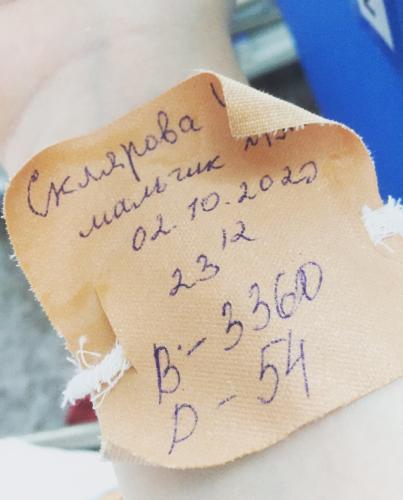 Склярова
мальчик
02.10.2020
23 12
В - 3360
D - 54